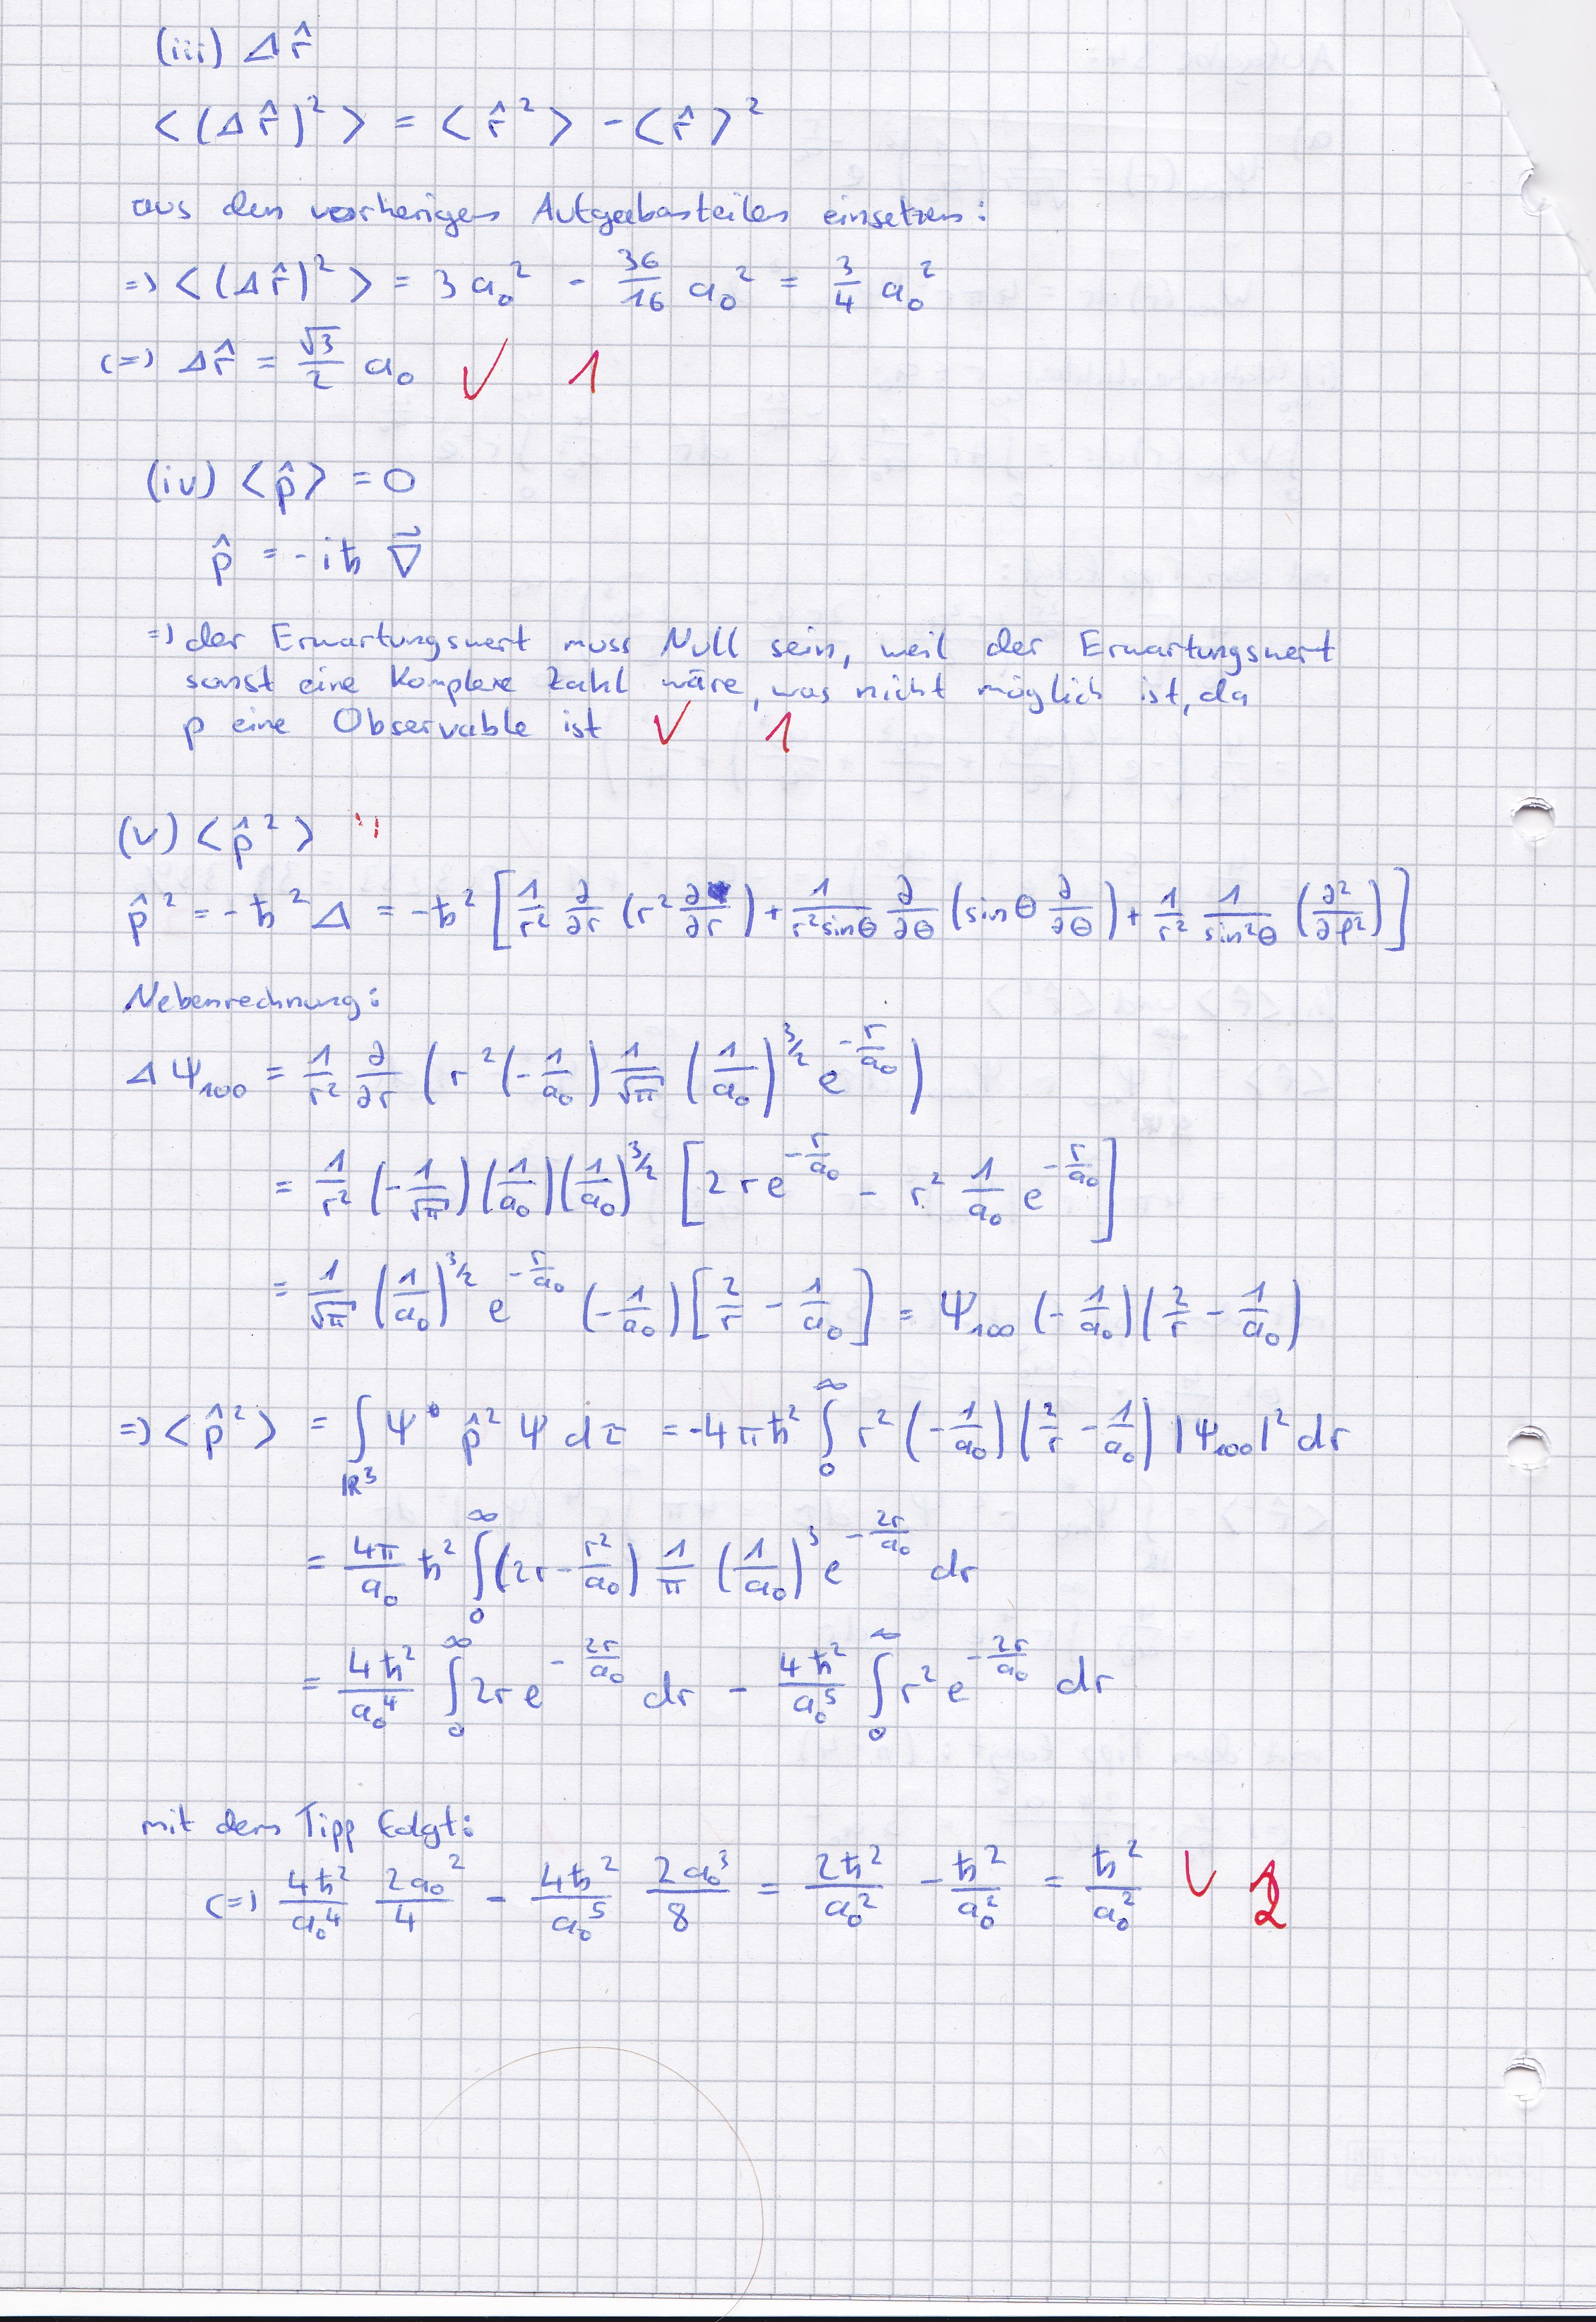 (iii) Δr̂
<(Δr̂)²> = <r̂²> - <r̂>²
aus den vorherigen Aufgabenteilen einsetzen:
=> <(Δr̂)²> = 3a₀² - 36/16 a₀² = 3/4 a₀²
<=> Δr̂ = √3/2 a₀ ✓ 1
(iv) <p̂> = 0
p̂ = -iħ ∇⃗
=> der Erwartungswert muss Null sein, weil der Erwartungswert
sonst eine Komplexe Zahl wäre, was nicht möglich ist, da
p eine Observable ist ✓ 1
(v) <p̂²>
p̂² = -ħ²Δ = -ħ² [1/r² ∂/∂r (r² ∂/∂r) + 1/(r² sinθ) ∂/∂θ (sinθ ∂/∂θ) + 1/r² 1/sin²θ (∂²/∂φ²)]
Nebenrechnung:
ΔΨ₁₀₀ = 1/r² ∂/∂r (r² (-1/a₀) 1/√π (1/a₀)^(3/2) e^(-r/a₀))
= 1/r² (-1/√π) (1/a₀) (1/a₀)^(3/2) [2r e^(-r/a₀) - r² 1/a₀ e^(-r/a₀)]
= 1/√π (1/a₀)^(3/2) e^(-r/a₀) (-1/a₀) [2/r - 1/a₀] = Ψ₁₀₀ (-1/a₀) (2/r - 1/a₀)
=> <p̂²> = ∫_ℝ³ Ψ* p̂² Ψ dτ = -4πħ² ∫₀^∞ r² (-1/a₀) (2/r - 1/a₀) |Ψ₁₀₀|² dr
= 4π/a₀ ħ² ∫₀^∞ (2r - r²/a₀) 1/π (1/a₀)³ e^(-2r/a₀) dr
= 4ħ²/a₀⁴ ∫₀^∞ 2r e^(-2r/a₀) dr - 4ħ²/a₀⁵ ∫₀^∞ r² e^(-2r/a₀) dr
mit dem Tipp folgt:
<=> 4ħ²/a₀⁴ 2a₀²/4 - 4ħ²/a₀⁵ 2a₀³/8 = 2ħ²/a₀² - ħ²/a₀² = ħ²/a₀² ✓ 2